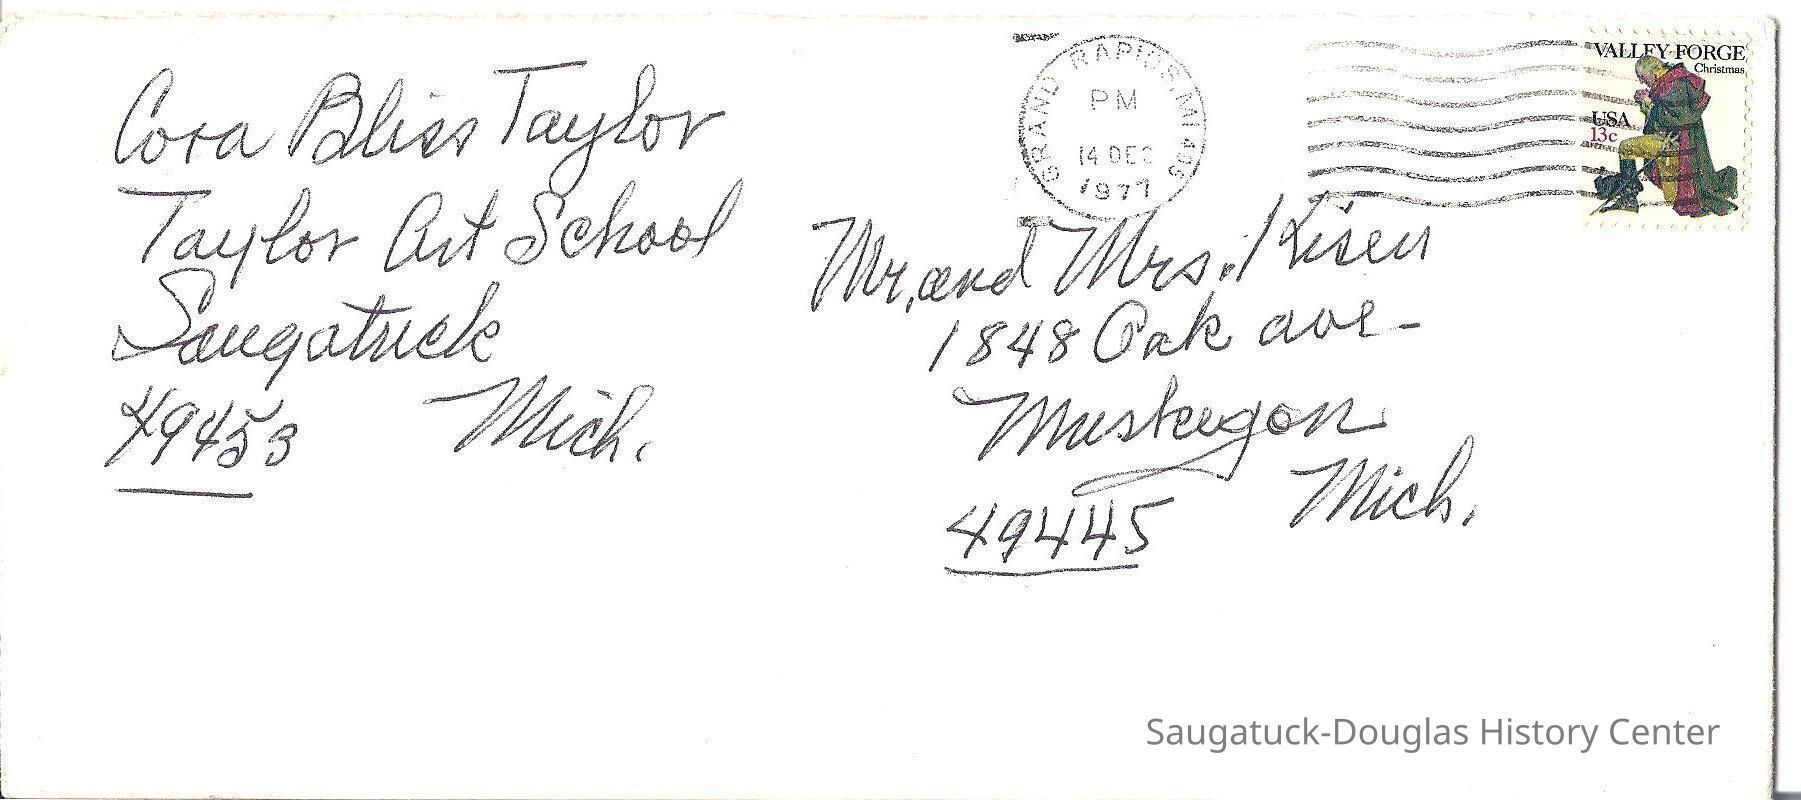 Cora Bliss Taylor
Taylor Art School
Saugatuck
49453 Mich.
GRAND RAPIDS, MI 495
PM
14 DEC
1977
VALLEY FORGE
Christmas
USA
13c
Mr. and Mrs. Kisen
1848 Oak ave-
Muskegon
Mich.
49445
Saugatuck-Douglas History Center